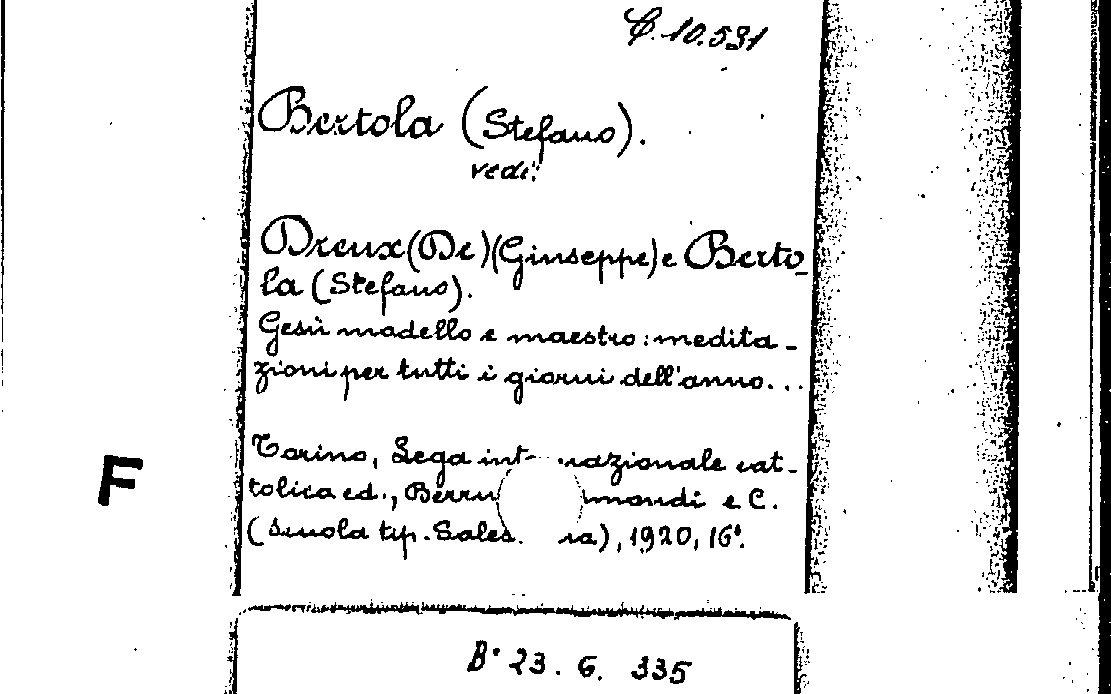 C. 10.531
Bertola (Stefano).
vedi:
Dreux (De) (Giuseppe) e Berto_
la (Stefano).
Gesù modello e maestro: medita -
zioni per tutti i giorni dell'anno...
Torino, Lega int nazionale cat -
tolica ed., Berru mondi e C.
(Scuola tip. Sales. na), 1920, 16°.
F
B. 23. 6. 335